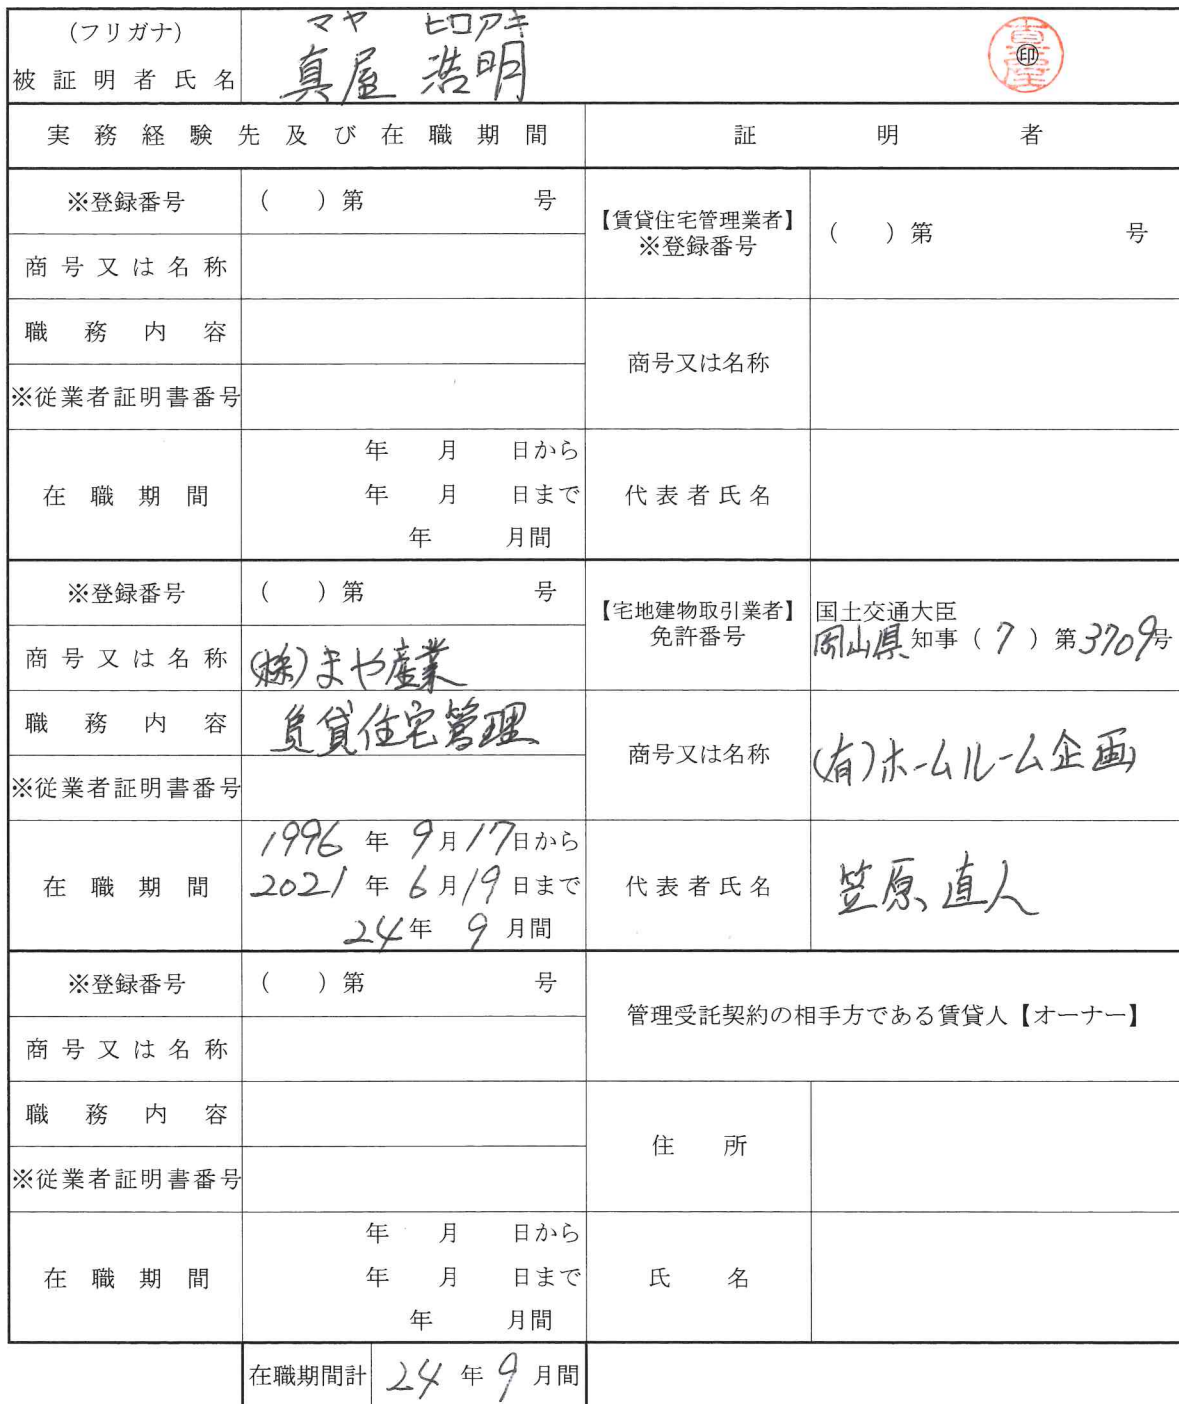 (フリガナ) マヤ ヒロアキ
被証明者氏名 真屋 浩明 ㊞ 真屋
実務経験先及び在職期間 証明者
※登録番号 ( )第 号
【賃貸住宅管理業者】
※登録番号 ( )第 号
商号又は名称
職務内容
商号又は名称
※従業者証明書番号
在職期間
年 月 日から
年 月 日まで
年 月間
代表者氏名
※登録番号 ( )第 号
【宅地建物取引業者】
免許番号
国土交通大臣
岡山県知事(7)第3709号
商号又は名称 (株)まや産業
職務内容 賃貸住宅管理
商号又は名称 (有)ホームルーム企画
※従業者証明書番号
在職期間
1996年9月17日から
2021年6月19日まで
24年9月間
代表者氏名 笠原直人
※登録番号 ( )第 号
管理受託契約の相手方である賃貸人【オーナー】
商号又は名称
職務内容
住所
※従業者証明書番号
在職期間
年 月 日から
年 月 日まで
年 月間
氏名
在職期間計 24年9月間